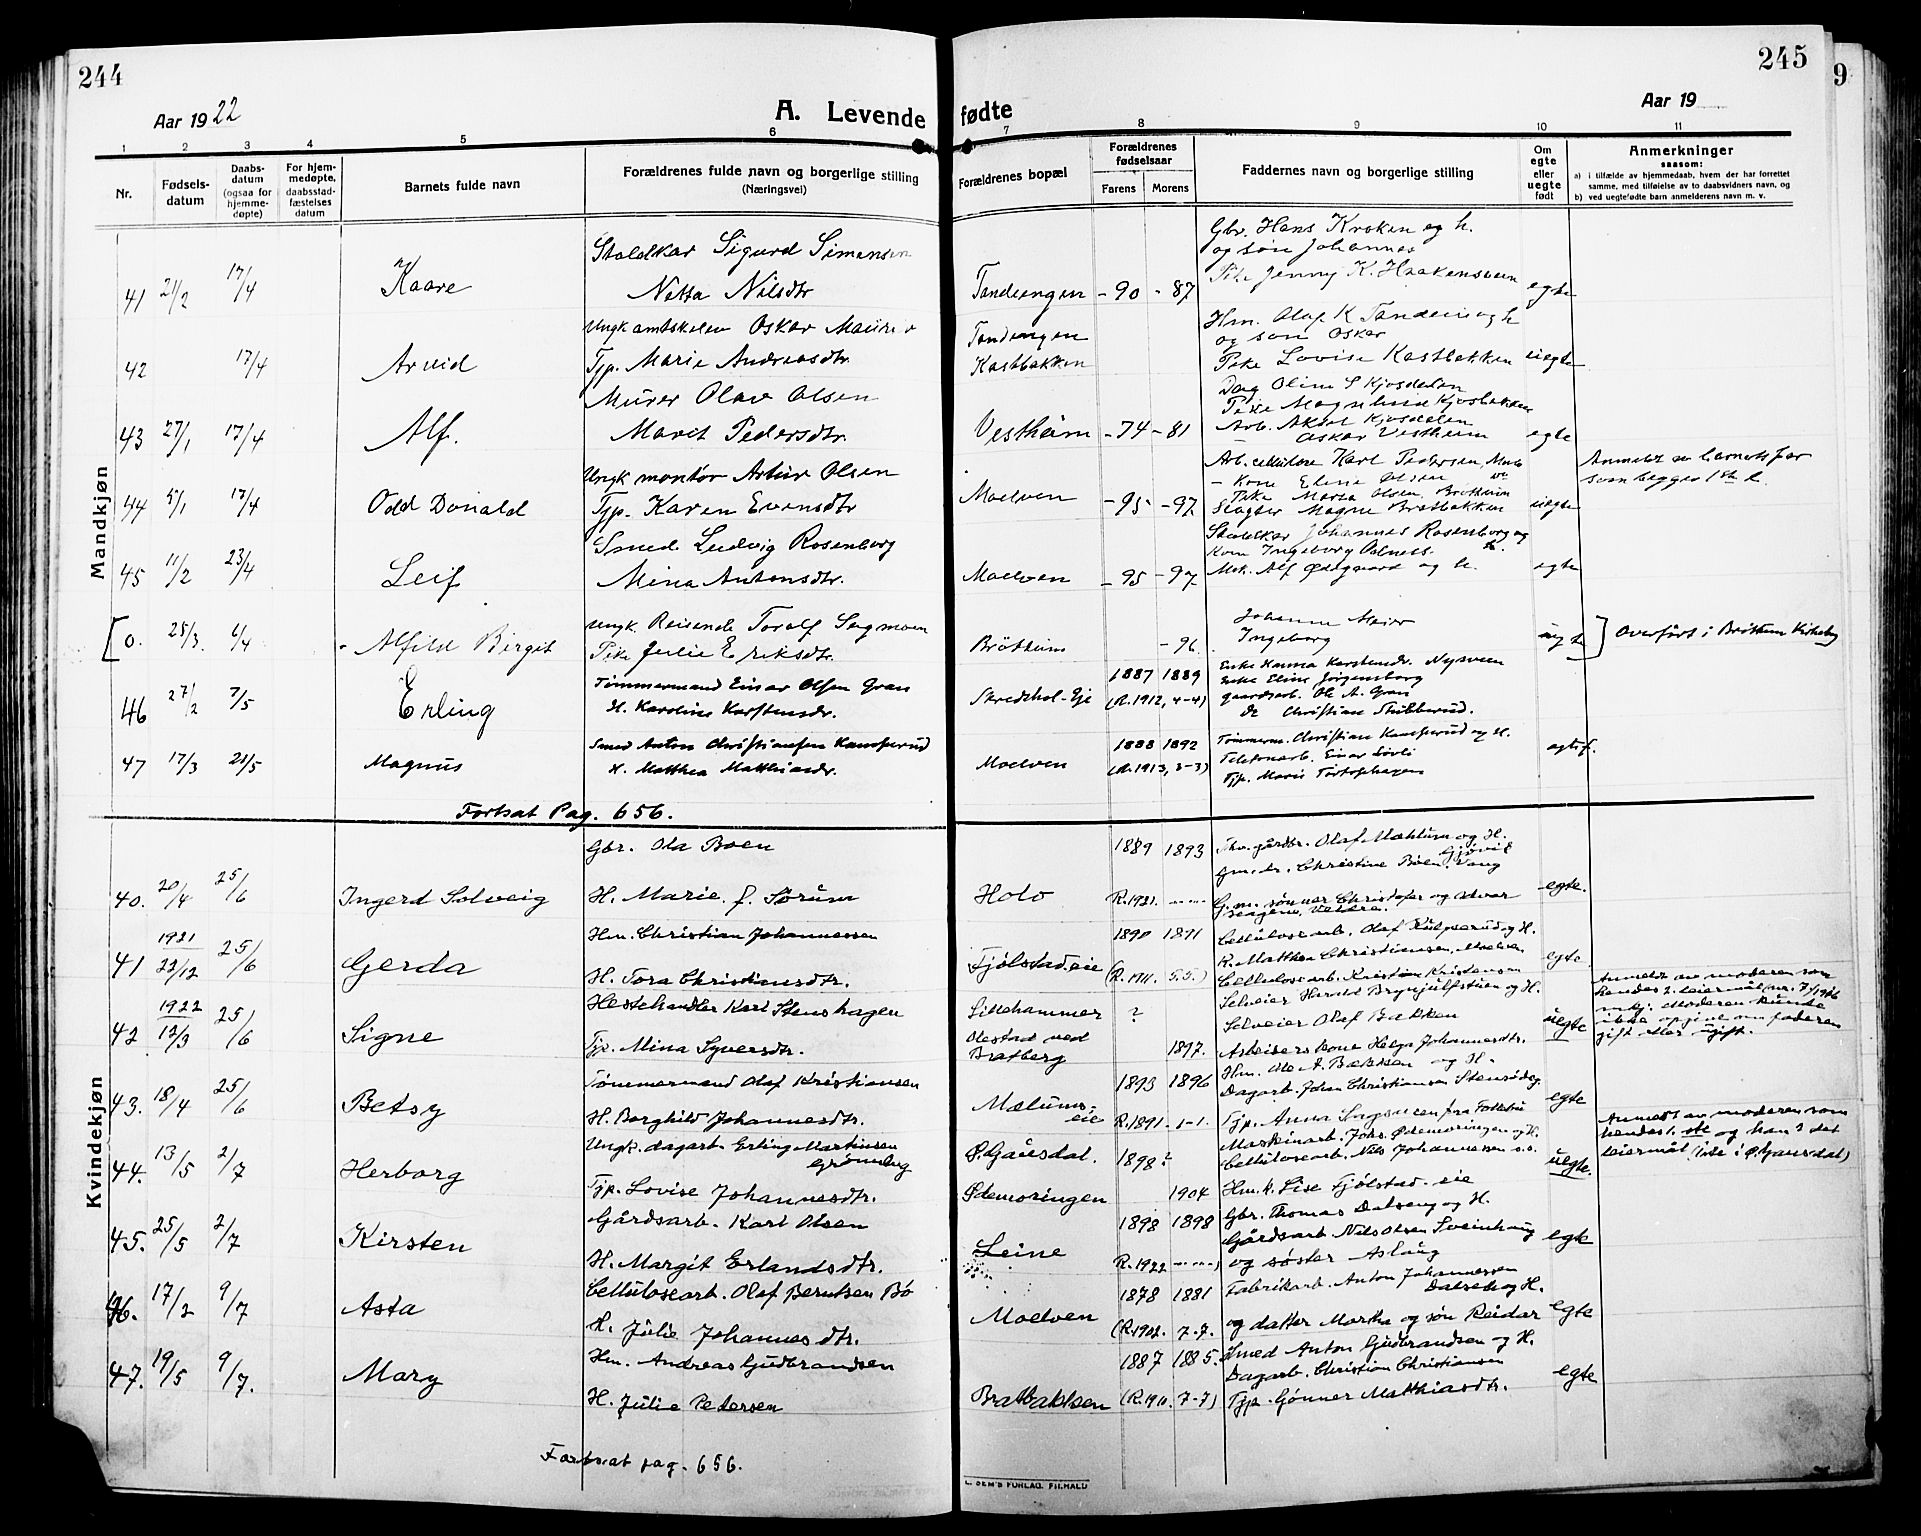 244
245
9
Aar 1922
A. Levende fødte
Aar 19
1 2 3 4 5 6 7 8 9 10 11
Nr.
Fødsels-
datum
Daabs-
datum
(ogsaa for
hjemme-
døpte)
For hjem-
medøpte,
daabsstad-
fæstelses
datum
Barnets fulde navn
Forældrenes fulde navn og borgerlige stilling
(Næringsvei)
Forældrenes bopæl
Forældrenes
fødselsaar
Farens Morens
Faddernes navn og borgerlige stilling
Om
egte
eller
uegte
født
Anmerkninger
saasom:
a) i tilfælde av hjemmedaab, hvem der har forrettet
samme, med tilføielse av to daabsvidners navn, og
b) ved uegtefødte barn anmelderens navn m. v.
Mandkjøn
Gbr. Hans Kroken og h.
og søn Johannes
Staldkar Sigurd Simensen
41 21/2 17/4 Kaare
Netta Nilsdtr
Tandeengen - 90 - 87
Pike Jenny K. Haakensveen
egte
Ungk amtskolev Oskar
Tandengen
Hm. Olaf K Tandeen og h
og søn Oskar
42 17/4 Arvid
Tjp. Marie Andreasdtr
Kastbakken
Pike Lovise Kastbakken
uegte
Murer Olav Olsen
Dag Oline S Kjosdalen
Pike Kjosbakken
43 27/1 17/4 Alf.
Marit Pedersdtr
Vestheim - 74 - 81
Arb. Aksel Kjosdalen
Oskar Vestheim
egte
Ungk montør Artur Olsen
Arb. cellulose Karl Pedersen,
- Kone Eline Olsen
Anmeldt av barnets far
som begges 1ste l.
44 5/1 17/4 Odd Donald
Tjp. Karen Evensdtr
Moelven - 95 - 97
Pike Maria Olsen, Brøttum
Slagter Magne Bratbakken
uegte
Smed Ludvig Rosenborg
Staldkar Johannes Rosenborg og
Kone Ingeborg
45 11/2 23/4 Leif
Mina Antonsdtr.
Moelven - 95 - 97
Mek. Alf Ødegaard og h.
egte
0. 25/3 /4 - Alfild Birgit
Ungk. Reisende Toralf Sagmoen
Pike Julie Eriksdtr.
Brøttum - 96
Johanne Meier
Ingeborg
Overført i Brøttum Kirkebog
46 27/2 7/5 Erling
Tømmermand Einar Olsen Gran
H. Karoline Karstensdr.
Skredshol-Eje
1887 1889
(R. 1912, 4-4)
Enke Hanna Karstensdr. Nysveen
Enke Eline Jørgensborg
gaardsarb. Ole A. Gran
do Christian Stubberud.
47 17/3 21/5 Magnus
Smed Anton Christiansen Kamperud
H. Matthea Matthiasdr.
Moelven
1888 1892
(R. 1913, 3-3)
Tømmerm. Christian Kamperud og H.
Telefonarb. Einar Sørli
Tjp. Marie Tortophagen
egtef.
Fortsat Pag. 656.
Kvindekjøn
Gbr. Ola Boen
1889 1893
Thv. gårdbr. Olaf Mæhlum og H.
Gm.dr. Christine Boen, Vang
Gjøvik
40. 20/4 25/6 Ingerd Solveig
H. Marie f. Sörum
Holo
R. 1921.
G.m. sønner Christofer og Alvar
egte.
1921
41 23/12 25/6 Gerda
Hm. Christian Johannessen
H. Tora Christiansdtr.
Fjölstad,eie
1890 1891
(R. 1911. 5.5.)
Cellulosearb. Olaf og H.
R. Matthea Christiansen, Moelven
Cellulosearb. Kristian Kristensen
egte
1922
42 12/3 25/6 Signe
Hestehandler Karl Stenshagen
Tjp. Mina Syversdtr.
Lillehammer ?
Olestad ved
Bratberg
1897.
Selveier Harald Brynjulfstuen og H.
Selveier Olaf Bakken
Arbeiderskone Helga Johannesdtr.
uegte
Anmeldt av moderen som
hendes 2. leiermål (nr. 7/1916
mkj. Moderen kunde
ikke opgive om faderen
gift eller ugift.
43. 18/4 25/6 Betsy
Tømmermand Olaf Kristiansen
H. Borghild Johannesdtr.
Mælums-
eie
1893 1896
R. 1891. 1-1.
Hm. Ole A. Bakken og H.
Dagarb. Johan Christiansen
Tjp. Anna
egte
44. 13/5 2/7 Herborg
Ungk. dagarb. Erling Martinsen
Grønberg
Tjp. Lovise Johannesdtr.
Ø. Gausdal.
Ødemoringen
1898?
1904
Maskinarb. Johs. Ødemoringen og H.
Cellulosearb. Nils Johannessen s.s.
Hm. k. Lise Fjölstad. eie
uegte.
Anmeldt av moderen som
hendes 1. ste og han 2 det
leiermål (Ikke i Ø. Gausdal)
45. 25/5 2/7 Kirsten
Gårdsarb. Karl Olsen
H. Margit Erlandsdtr.
Leine
1898 1898
R. 1922
Gbr. Thomas Dalseng og H.
Gårdsarb. Nils Olsen Sveinhaug
og søster Aslaug
egte
46. 17/2 9/7 Asta
Cellulosearb. Olaf Berntsen Bö
H. Julie Johannesdtr.
Moelven
1878 1881
(R. 1902. 7-7.
Fabrikarb. Anton Johannessen
Dalseth og H.
og datter Martha og søn Reidar
egte
47. 19/5 9/7. Mary
Hm. Andreas Gudbrandsen
H. Julie Pedersen
Bratbakken
1887 1885.
(R. 1911. 7-7)
Smed Anton Gudbrandsen og H.
Dagarb. Christian Christiansen
Tjp. Gønner Matthiasdtr.
egte
Fortsat pag. 656.
E. SEM'S FORLAG, FR.HALD